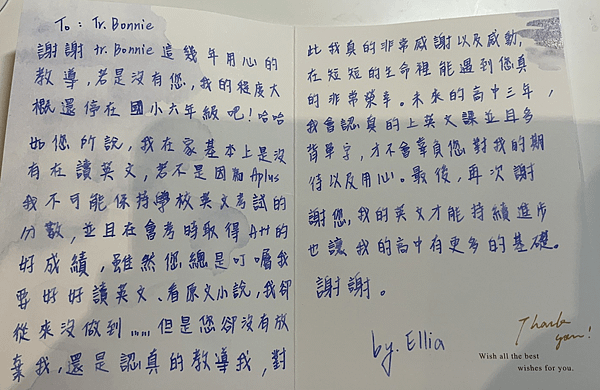 To : Tr. Bonnie
謝謝 tr. Bonnie 這幾年用心的
教導，若是沒有您，我的程度大
概還停在國小六年級吧！哈哈
如您所說，我在家基本上是沒
有在讀英文，若不是因為Aplus
我不可能保持學校英文考試的
分數，並且在會考時取得A++的
好成績，雖然您總是叮囑我
要好好讀英文、看原文小說，我卻
從來沒做到......但是您卻沒有放
棄我，還是認真的教導我，對
此我真的非常感謝以及感動，
在短短的生命裡能遇到您真
的非常榮幸。未來的高中三年，
我會認真的上英文課並且多
背單字，才不會辜負您對我的期
待以及用心。最後，再次謝
謝您，我的英文才能持續進步
也讓我的高中有更多的基礎。
謝謝。
by. Ellia
Thank
you!
Wish all the best
wishes for you.